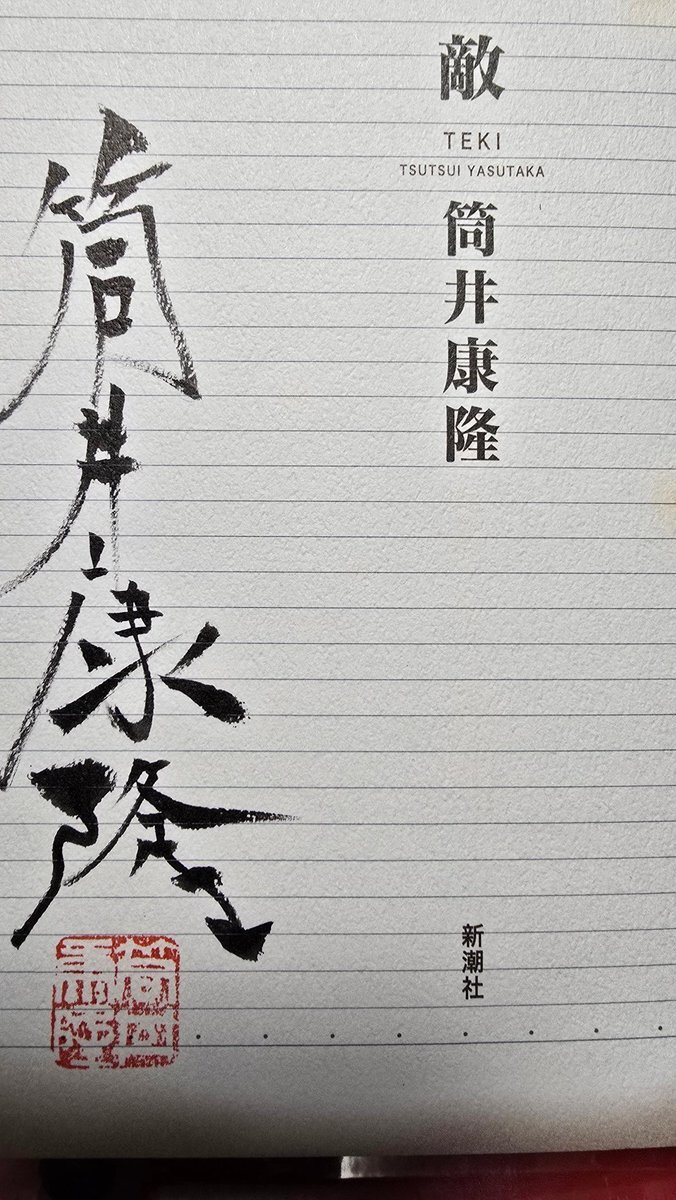 敵
TEKI
TSUTSUI YASUTAKA
筒井康隆
新潮社
筒井康隆